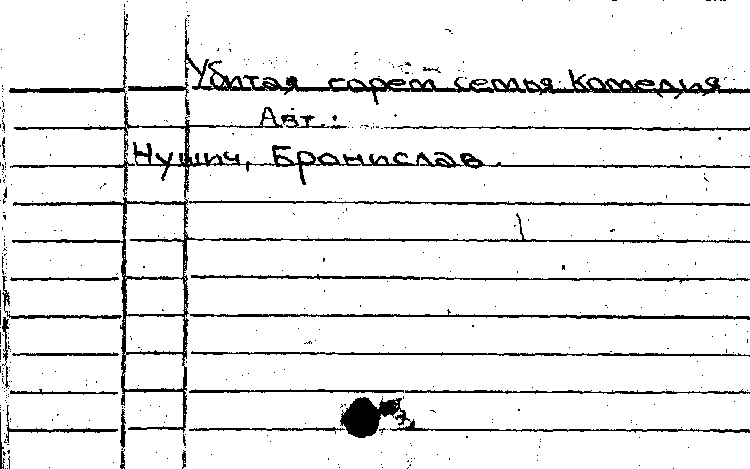 Убитая горем семья Комедия
Авт.:
Нушич, Бранислав.